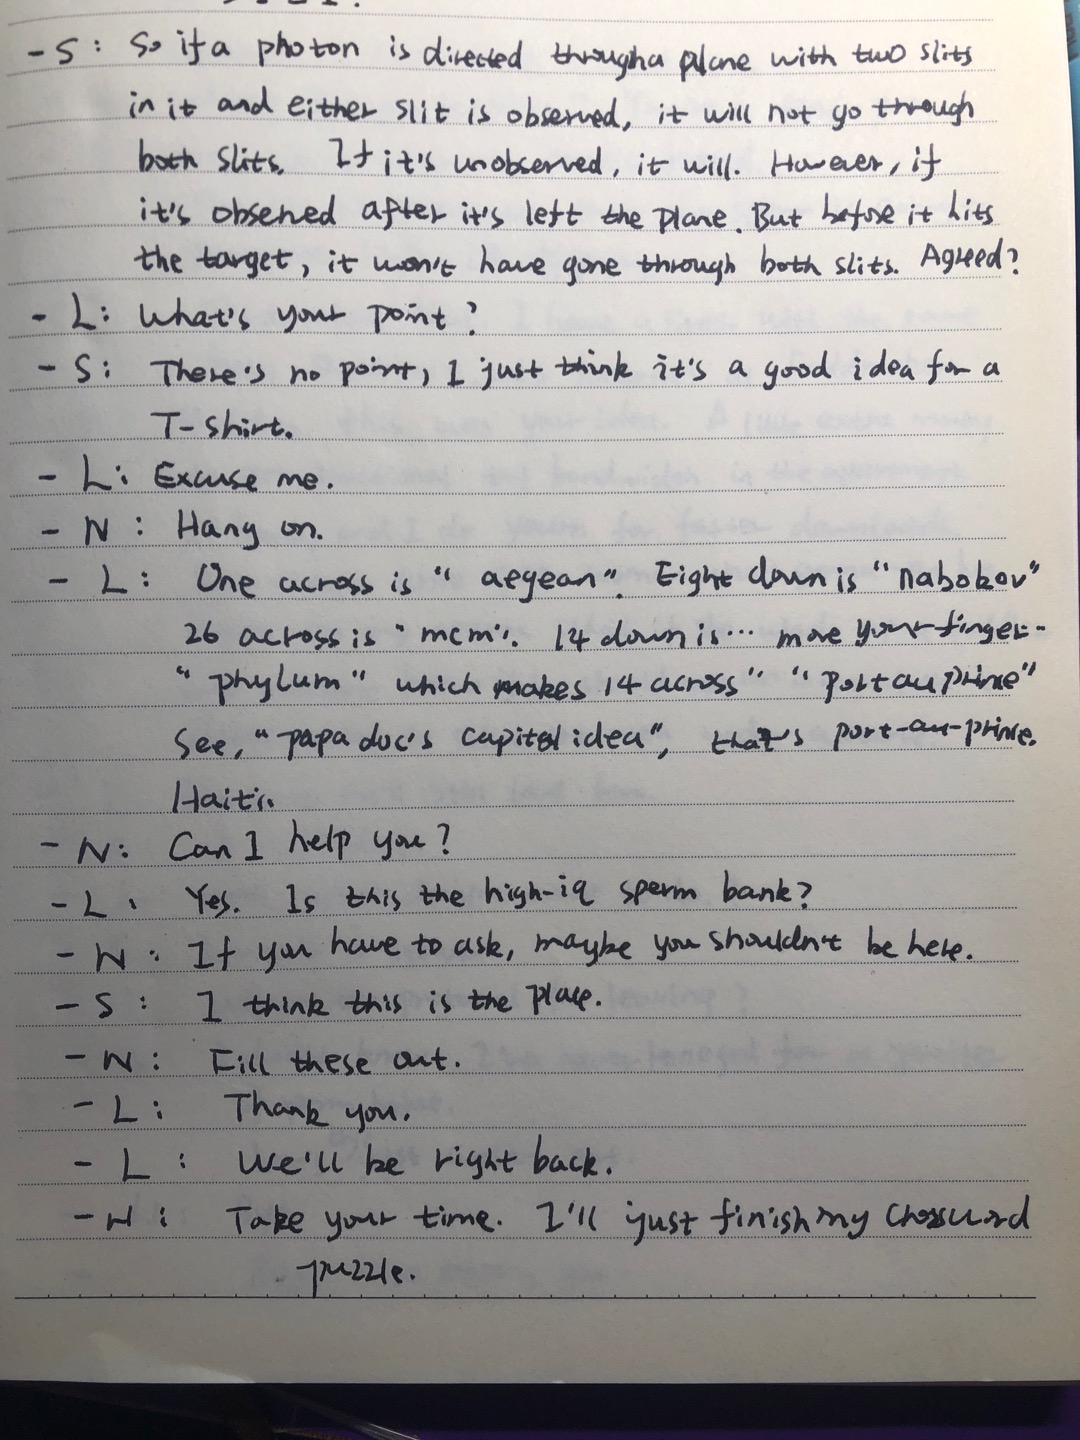 - S: So if a photon is directed througha plane with two slits
in it and either slit is observed, it will not go through
both slits. If it's unobserved, it will. However, if
it's obsened after it's left the plane. But before it hits
the target, it won't have gone through both slits. Agreed?
- L: What's your point?
- S: There's no point, I just think it's a good idea for a
T-shirt.
- L: Excuse me.
- N: Hang on.
- L: One across is "aegean". Eight down is "nabokov"
26 across is "mcm". 14 down is... move your finger-
"phylum" which makes 14 across" "port au prince"
See, "papa doc's capitol idea", that's port-au-prince.
Haiti.
- N: Can I help you?
- L: Yes. Is this the high-iq sperm bank?
- N: If you have to ask, maybe you shouldn't be here.
- S: I think this is the place.
- N: Fill these out.
- L: Thank you.
- L: We'll be right back.
- N: Take your time. I'll just finish my crossword
puzzle.